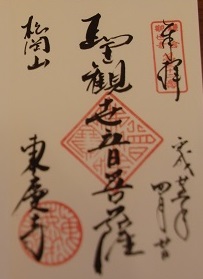 奉拝
平成廿二年
四月廿日
聖観世音菩薩
松岡山
東慶寺